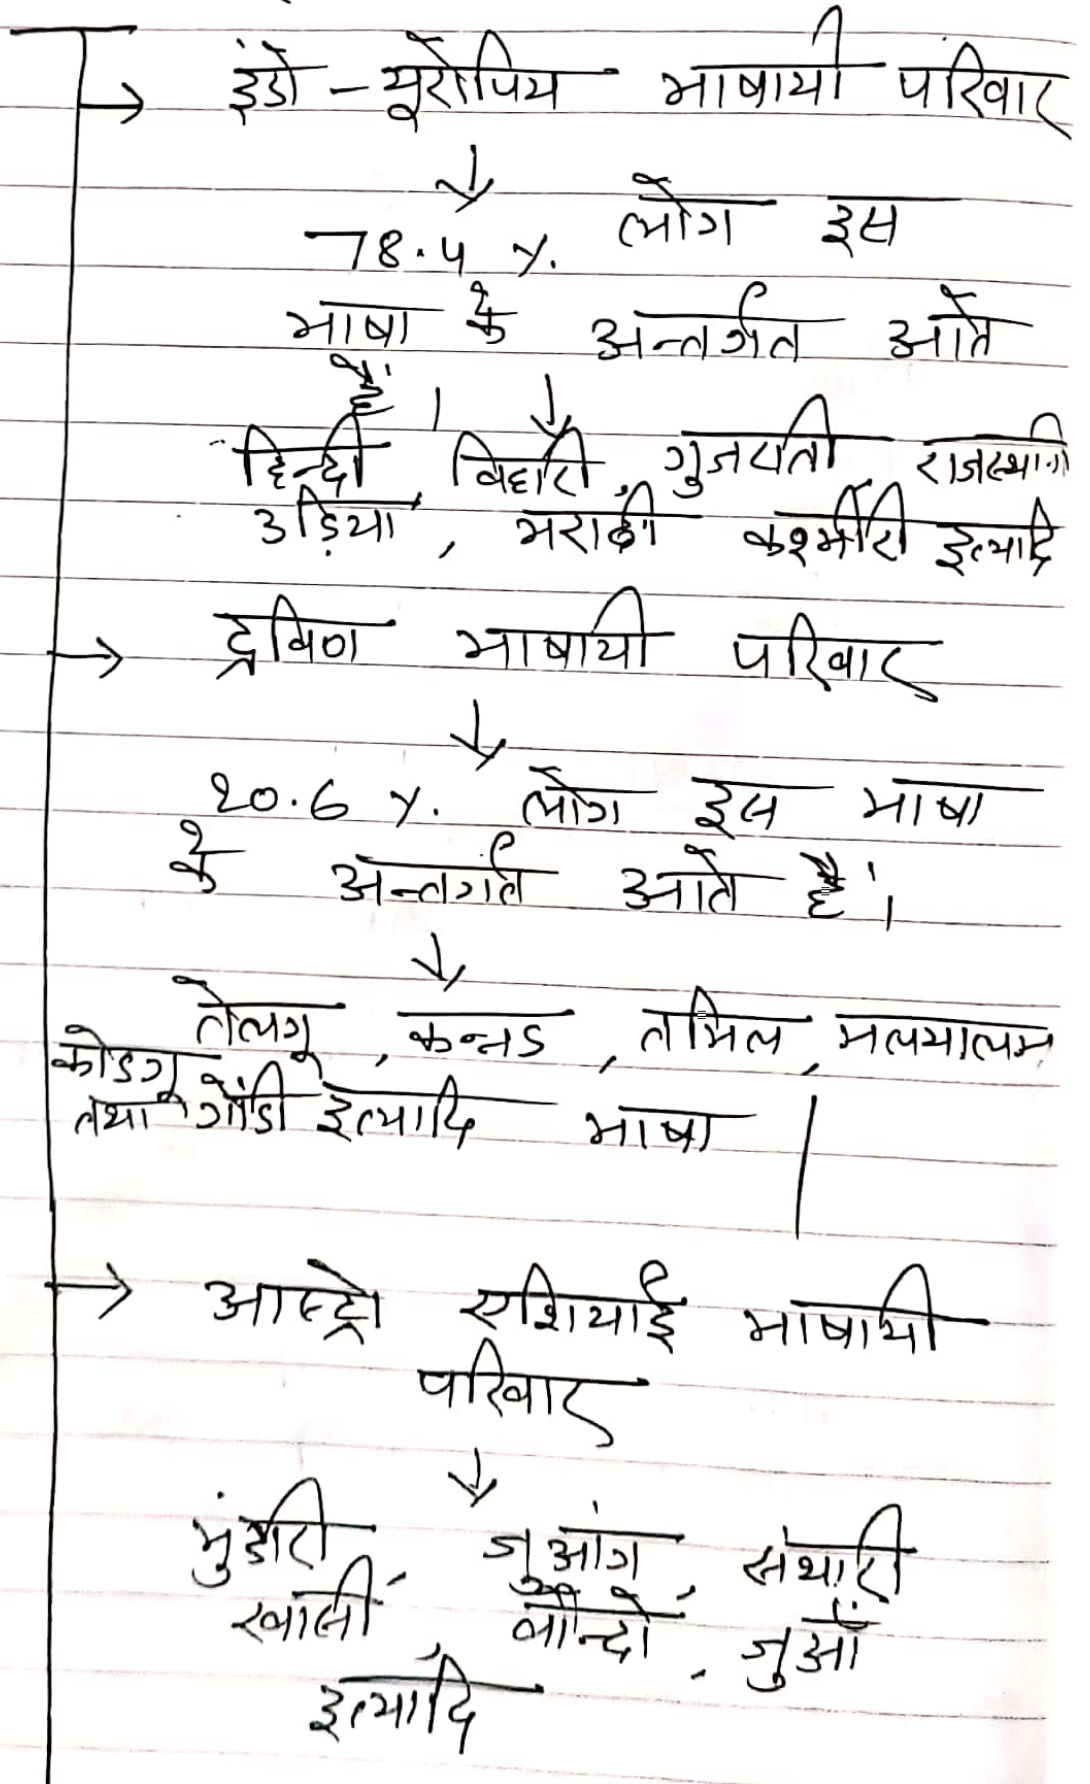 इंडो - यूरोपिय भाषायी परिवार
78.4 %. लोग इस
भाषा के अन्तर्गत आते
हैं।
हिन्दी, विहारी, गुजराती राजस्थानी
उड़िया, मराठी कश्मीरी इत्यादि
द्रविण भाषायी परिवार
20.6 %. लोग इस भाषा
के अन्तर्गत आते हैं।
तेलगू, कन्नड, तमिल, मलयालम
कोडगू
तथा गोंडी इत्यादि भाषा।
आस्ट्रो एशियाई भाषायी
परिवार
मुंडारी, जुआंग, संथारी
खासी, बोन्दो, जुआँ
इत्यादि